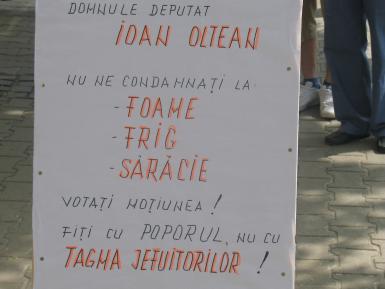 DOMNULE DEPUTAT
IOAN OLTEAN
NU NE CONDAMNAȚI LA:
- FOAME
- FRIG
- SĂRĂCIE
VOTAȚI MOȚIUNEA!
FIȚI CU POPORUL, NU CU
TAGMA JEFUITORILOR!